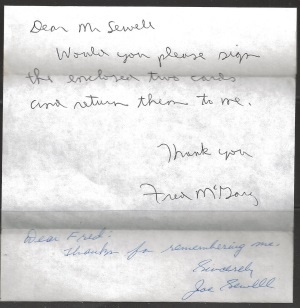 Dear Mr Sewell
Would you please sign
the enclosed two cards
and return them to me.
Thank you
Fred McGary
Dear Fred:
Thanks for remembering me.
Sincerely
Joe Sewell